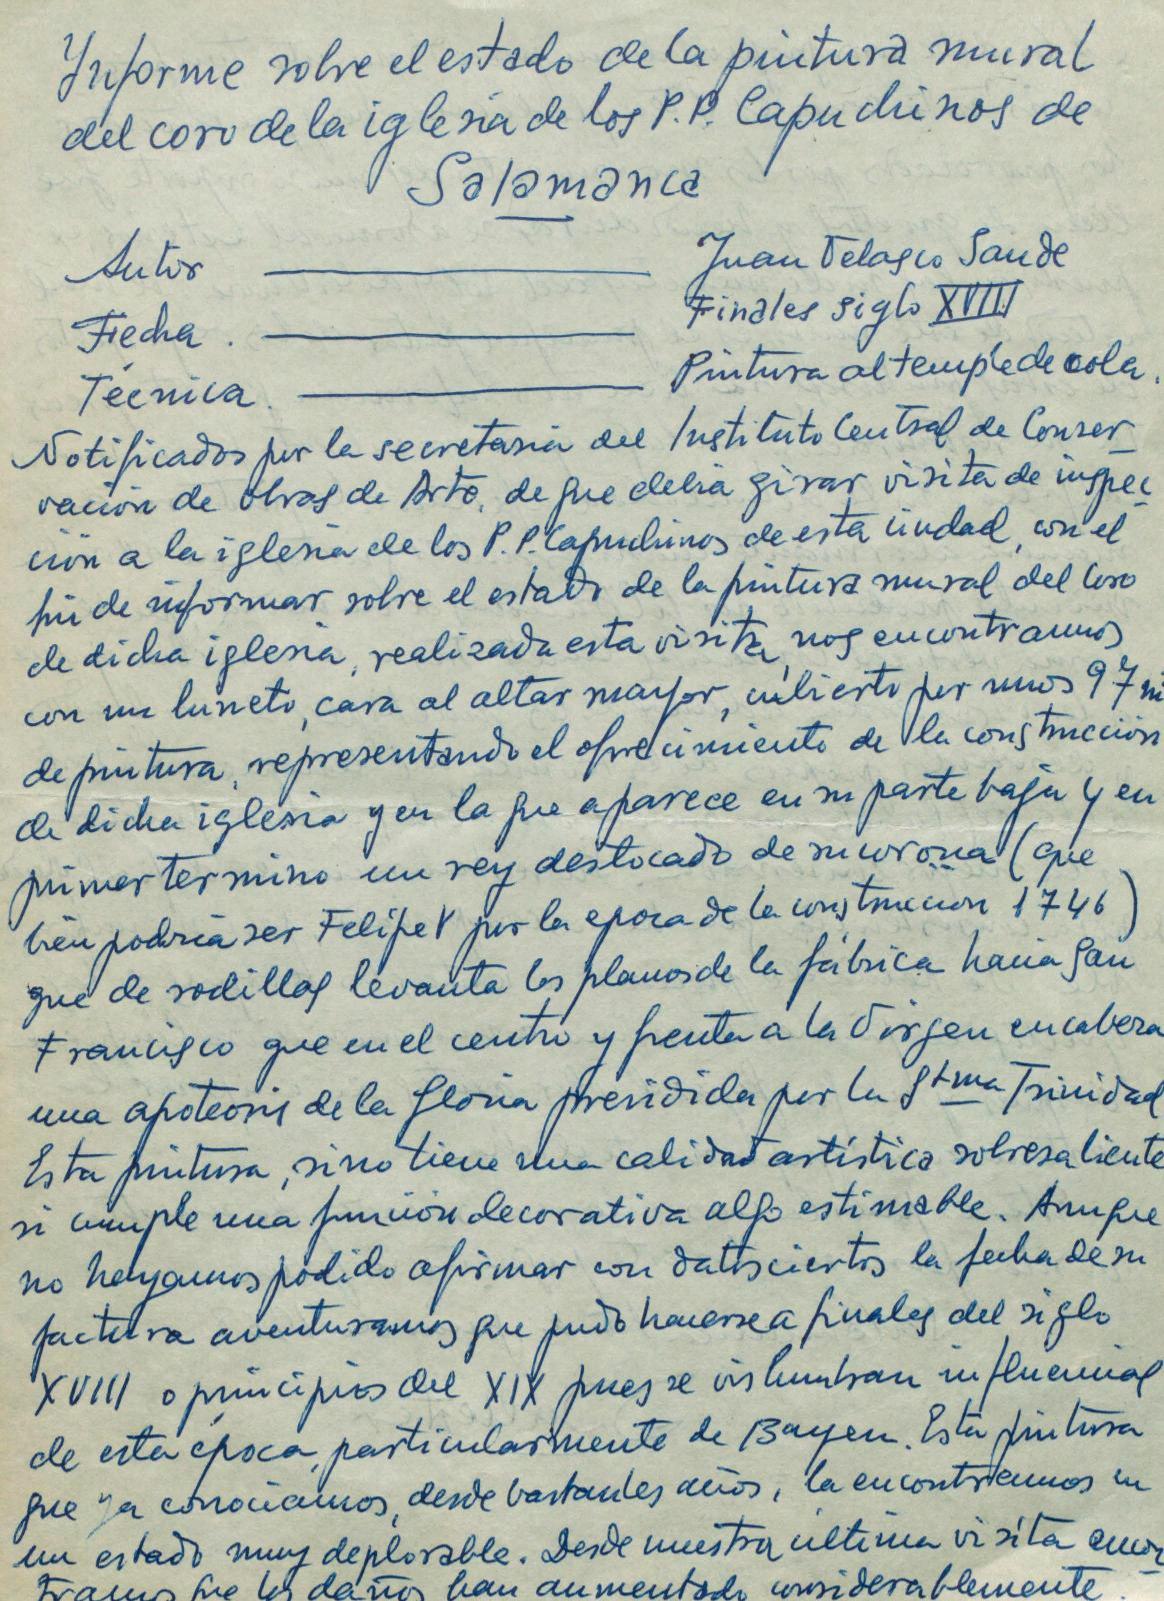 Informe sobre el estado de la pintura mural
del coro de la iglesia de los P.P. Capuchinos de
Salamanca
Autor Juan Velasco Sande
Fecha. Finales siglo XVIII
Técnica. Pintura al temple de cola.
Notificados por la secretaria del Instituto Central de Conser-
vación de obras de Arte, de que debia girar visita de inspec-
ción a la iglesia de los P.P. Capuchinos de esta ciudad, con el
fin de informar sobre el estado de la pintura mural del Coro
de dicha iglesia, realizada esta visita, nos encontramos
con un luneto, cara al altar mayor, cubierto por unos 97 m
de pintura, representando el ofrecimiento de la construcción
de dicha iglesia y en la que aparece en su parte baja y en
primer termino un rey destocado de su corona (que
bien podria ser Felipe V por la epoca de la construccion 1746)
que de rodillas levanta los planos de la fábrica hacia San
Francisco que en el centro y frente a la Virgen encabeza
una apoteosis de la Gloria presidida por la Stma Trinidad
Esta pintura, si no tiene una calidad artística sobresaliente
si cumple una función decorativa algo estimable. Aunque
no hayamos podido afirmar con datos ciertos la fecha de su
factura aventuramos que pudo hacerse a finales del siglo
XVIII o principios del XIX pues se vislumbran influencias
de esta época, particularmente de Bayeu. Esta pintura
que ya conociamos, desde bastantes años, la encontramos en
un estado muy deplorable. Desde nuestra ultima visita encon-
tramos que los daños han aumentado considerablemente.